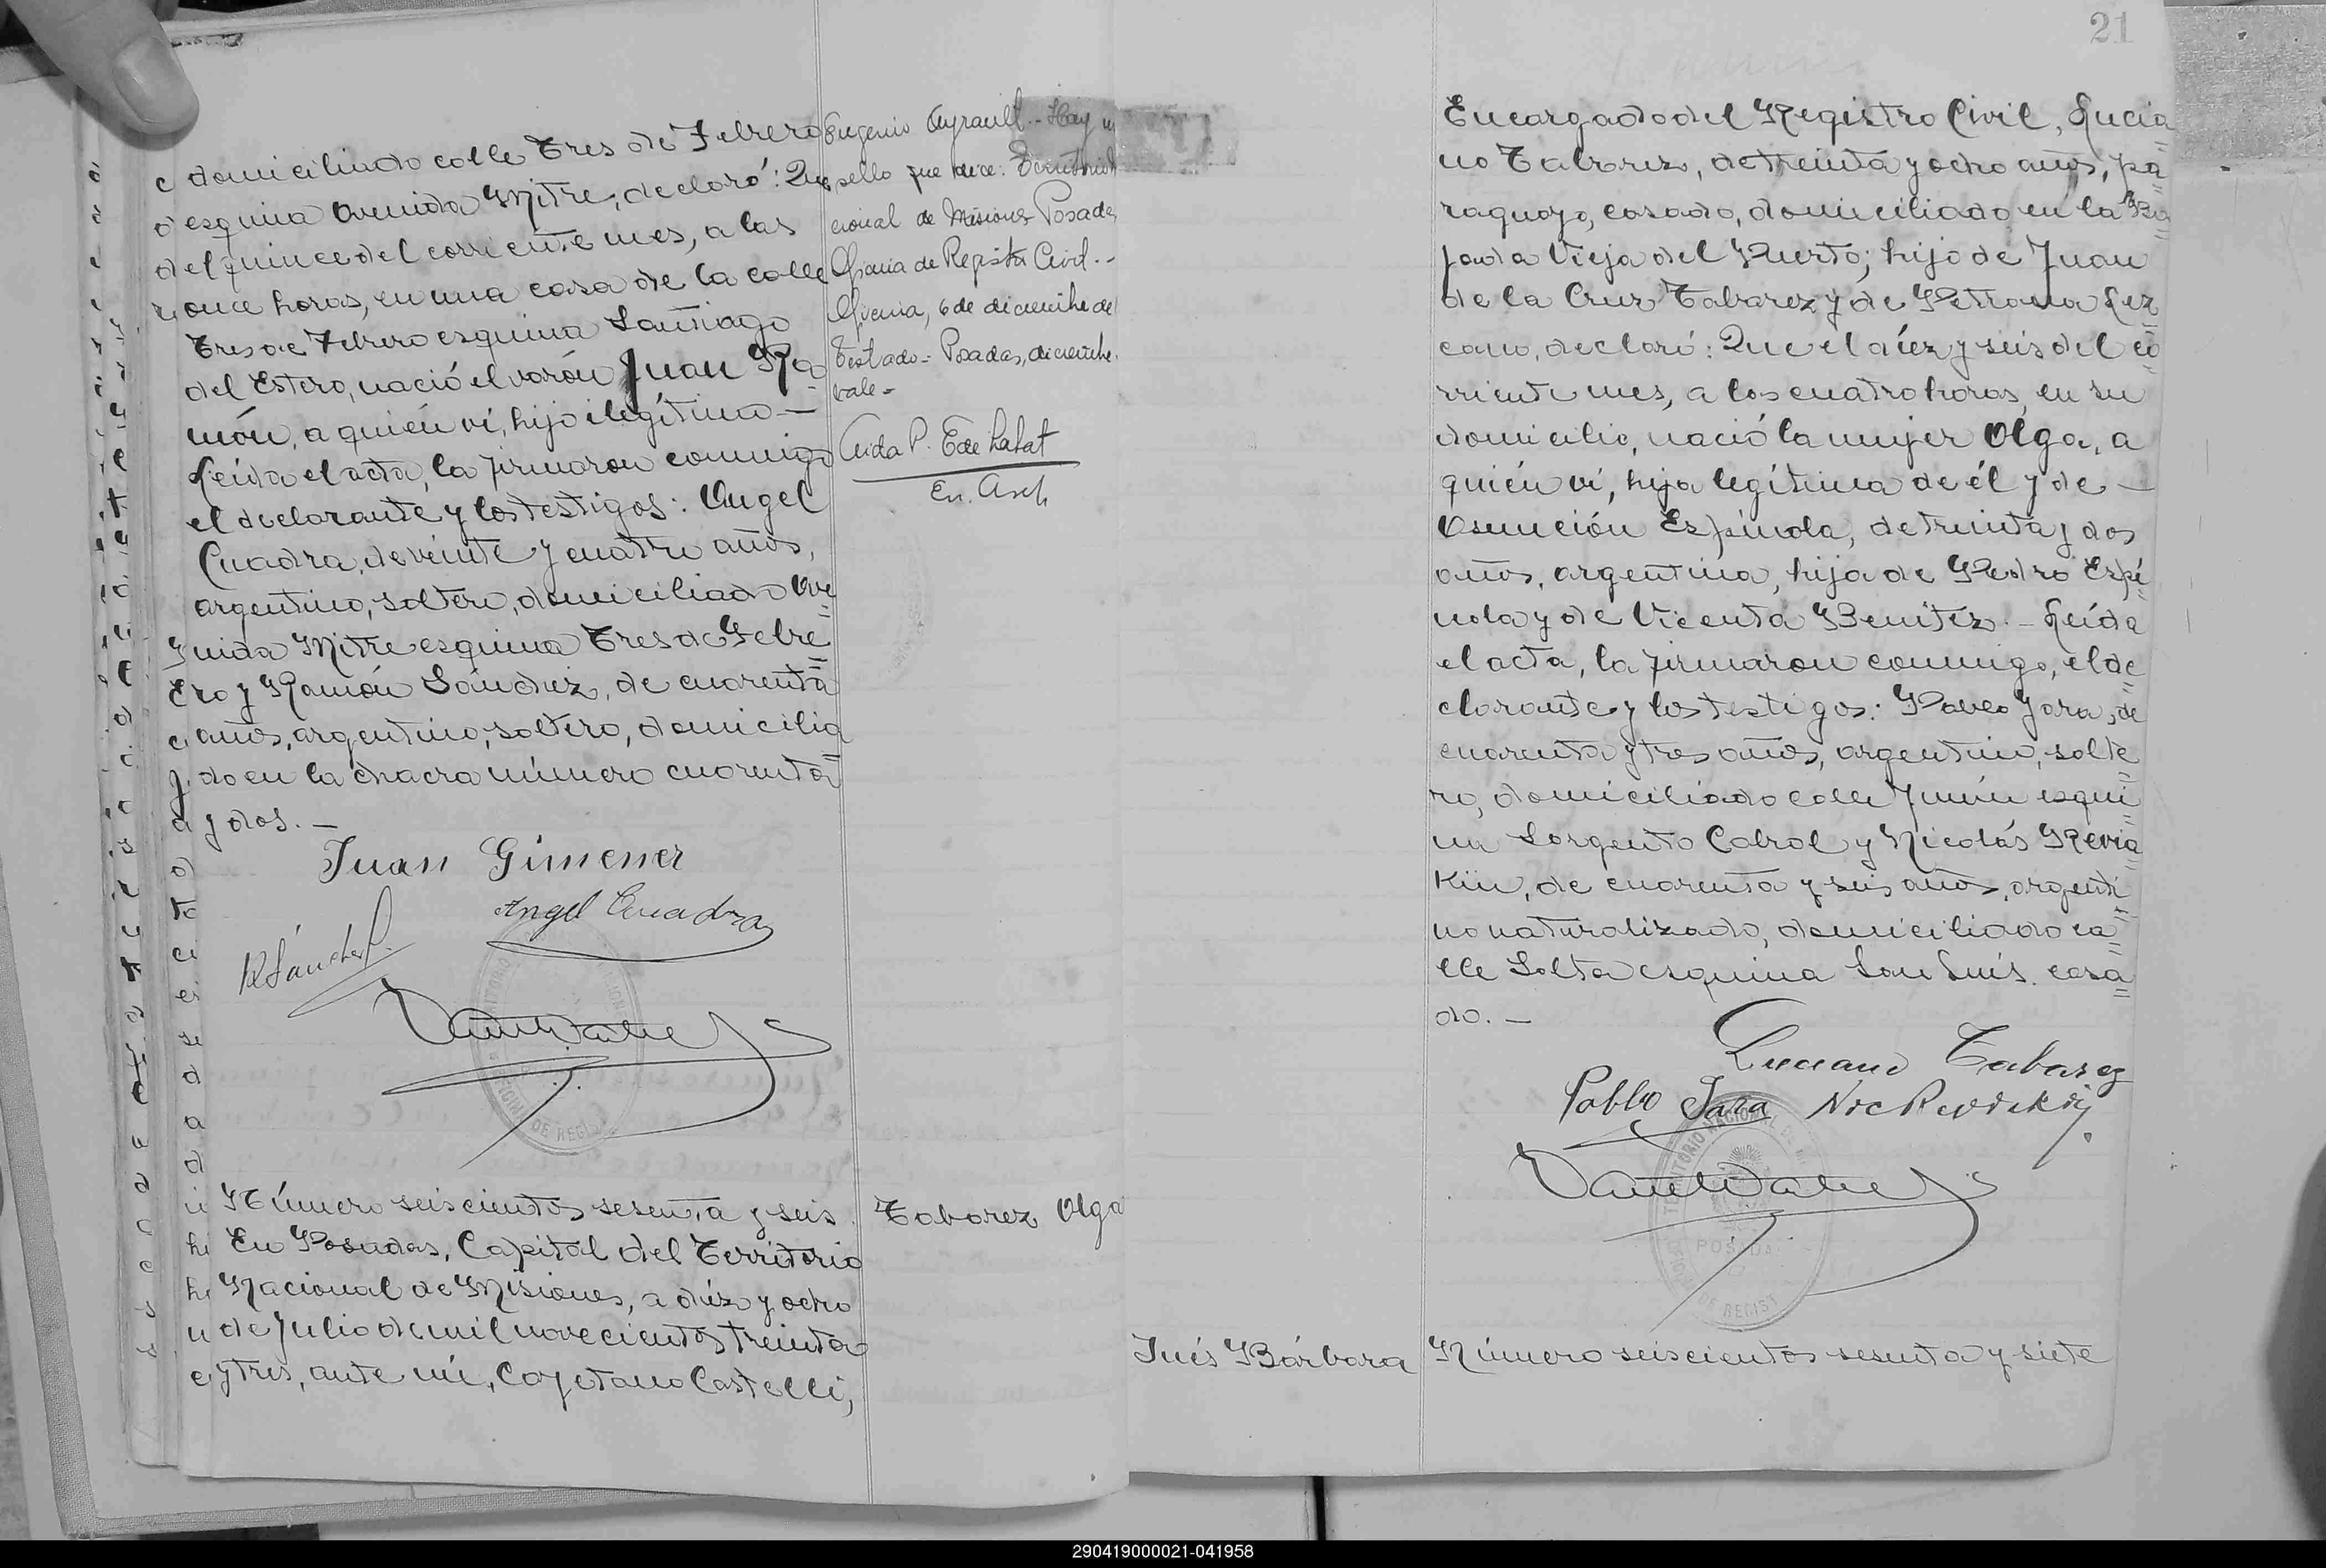 domiciliado calle Tres de Febrero
esquina Avenida Mitre, declaró: Que
el quince del corriente mes, a las
once horas, en una casa de la calle
Tres de Febrero esquina Santiago
del Estero, nació el varón Juan Ra
món, a quién ví, hijo ilegítimo —
Leída el acta, la firmaron conmigo
el declarante y los testigos: Angel
Cuadra, de veinte y cuatro años,
argentino, soltero, domiciliado Ave
nida Mitre esquina Tres de Febre
ro y Ramón Sánchez, de cuarenta
años, argentino, soltero, domicilia
do en la chacra número cuarenta
y dos. —
Juan Gimenez
Angel Cuadra
R Sánchez
Número seiscientos sesenta y seis
En Posadas, Capital del Territorio
Nacional de Misiones, a diéz y ocho
de Julio de mil novecientos treinta
y tres, ante mí, Cayetano Castelli,
Eugenio Ayrault.- Hay un
sello que dice:
cional de Misiones Posadas
Oficina de Registro Civil.-
Oficina, 6 de diciembre de
Testado = Posadas, diciembre.
vale =
Aida P. E de Labat
En. Arch
Tabarez Olga
21
Encargado del Registro Civil, Lucia
no Tabarez, de treinta y ocho años, pa
raguayo, casado, domiciliado en la Ba
jada Vieja del Puerto; hijo de Juan
de la Cruz Tabarez y de Petrona Lez
cano, declaró: Que el diéz y seis del co
rriente mes, a las cuatro horas, en su
domicilio, nació la mujer Olga, a
quién ví, hija legítima de él y de —
Asunción Espínola, de treinta y dos
años, argentina, hija de Pedro Espí
nola y de Vicenta Benitez. - Leída
el acta, la firmaron conmigo, el de
clarante y los testigos: Pablo Jara, de
cuarenta y tres años, argentino, solte
ro, domiciliado calle Junín esqui
na Sargento Cabral y Nicolás Revia
kin, de cuarenta y seis años, argenti
no naturalizado, domiciliado ca
lle Salta esquina San Luís. casa
do. —
Luciano Tabarez
Pablo Jara
TERRITORIO NACIONAL DE
POSADAS
DE REGIST
Inés Bárbara
Número seiscientos sesenta y siete
290419000021-041958